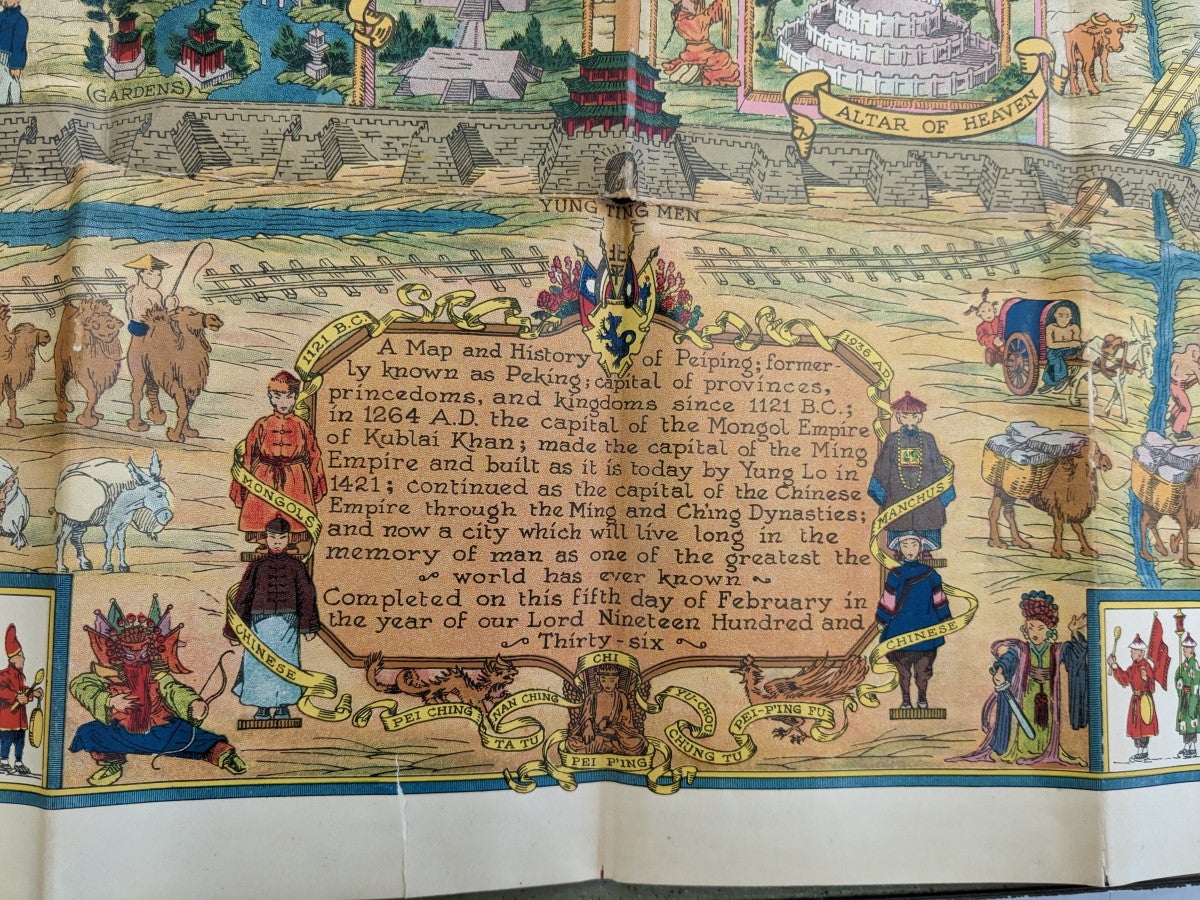 (GARDENS)
ALTAR OF HEAVEN
YUNG TING MEN
1121 B.C.
1936 A.D.
A Map and History of Peiping; former-
ly known as Peking; capital of provinces,
princedoms, and kingdoms since 1121 B.C.;
in 1264 A.D. the capital of the Mongol Empire
of Kublai Khan; made the capital of the Ming
Empire and built as it is today by Yung Lo in
1421; continued as the capital of the Chinese
Empire through the Ming and Ch'ing Dynasties;
and now a city which will live long in the
memory of man as one of the greatest the
world has ever known
Completed on this fifth day of February in
the year of our Lord Nineteen Hundred and
Thirty-six
MONGOLS
MANCHUS
CHINESE
CHINESE
CHI
PEI CHING
NAN CHING
TA TU
PEI P'ING
YU-CHOU
CHUNG TU
PEI-P'ING FU